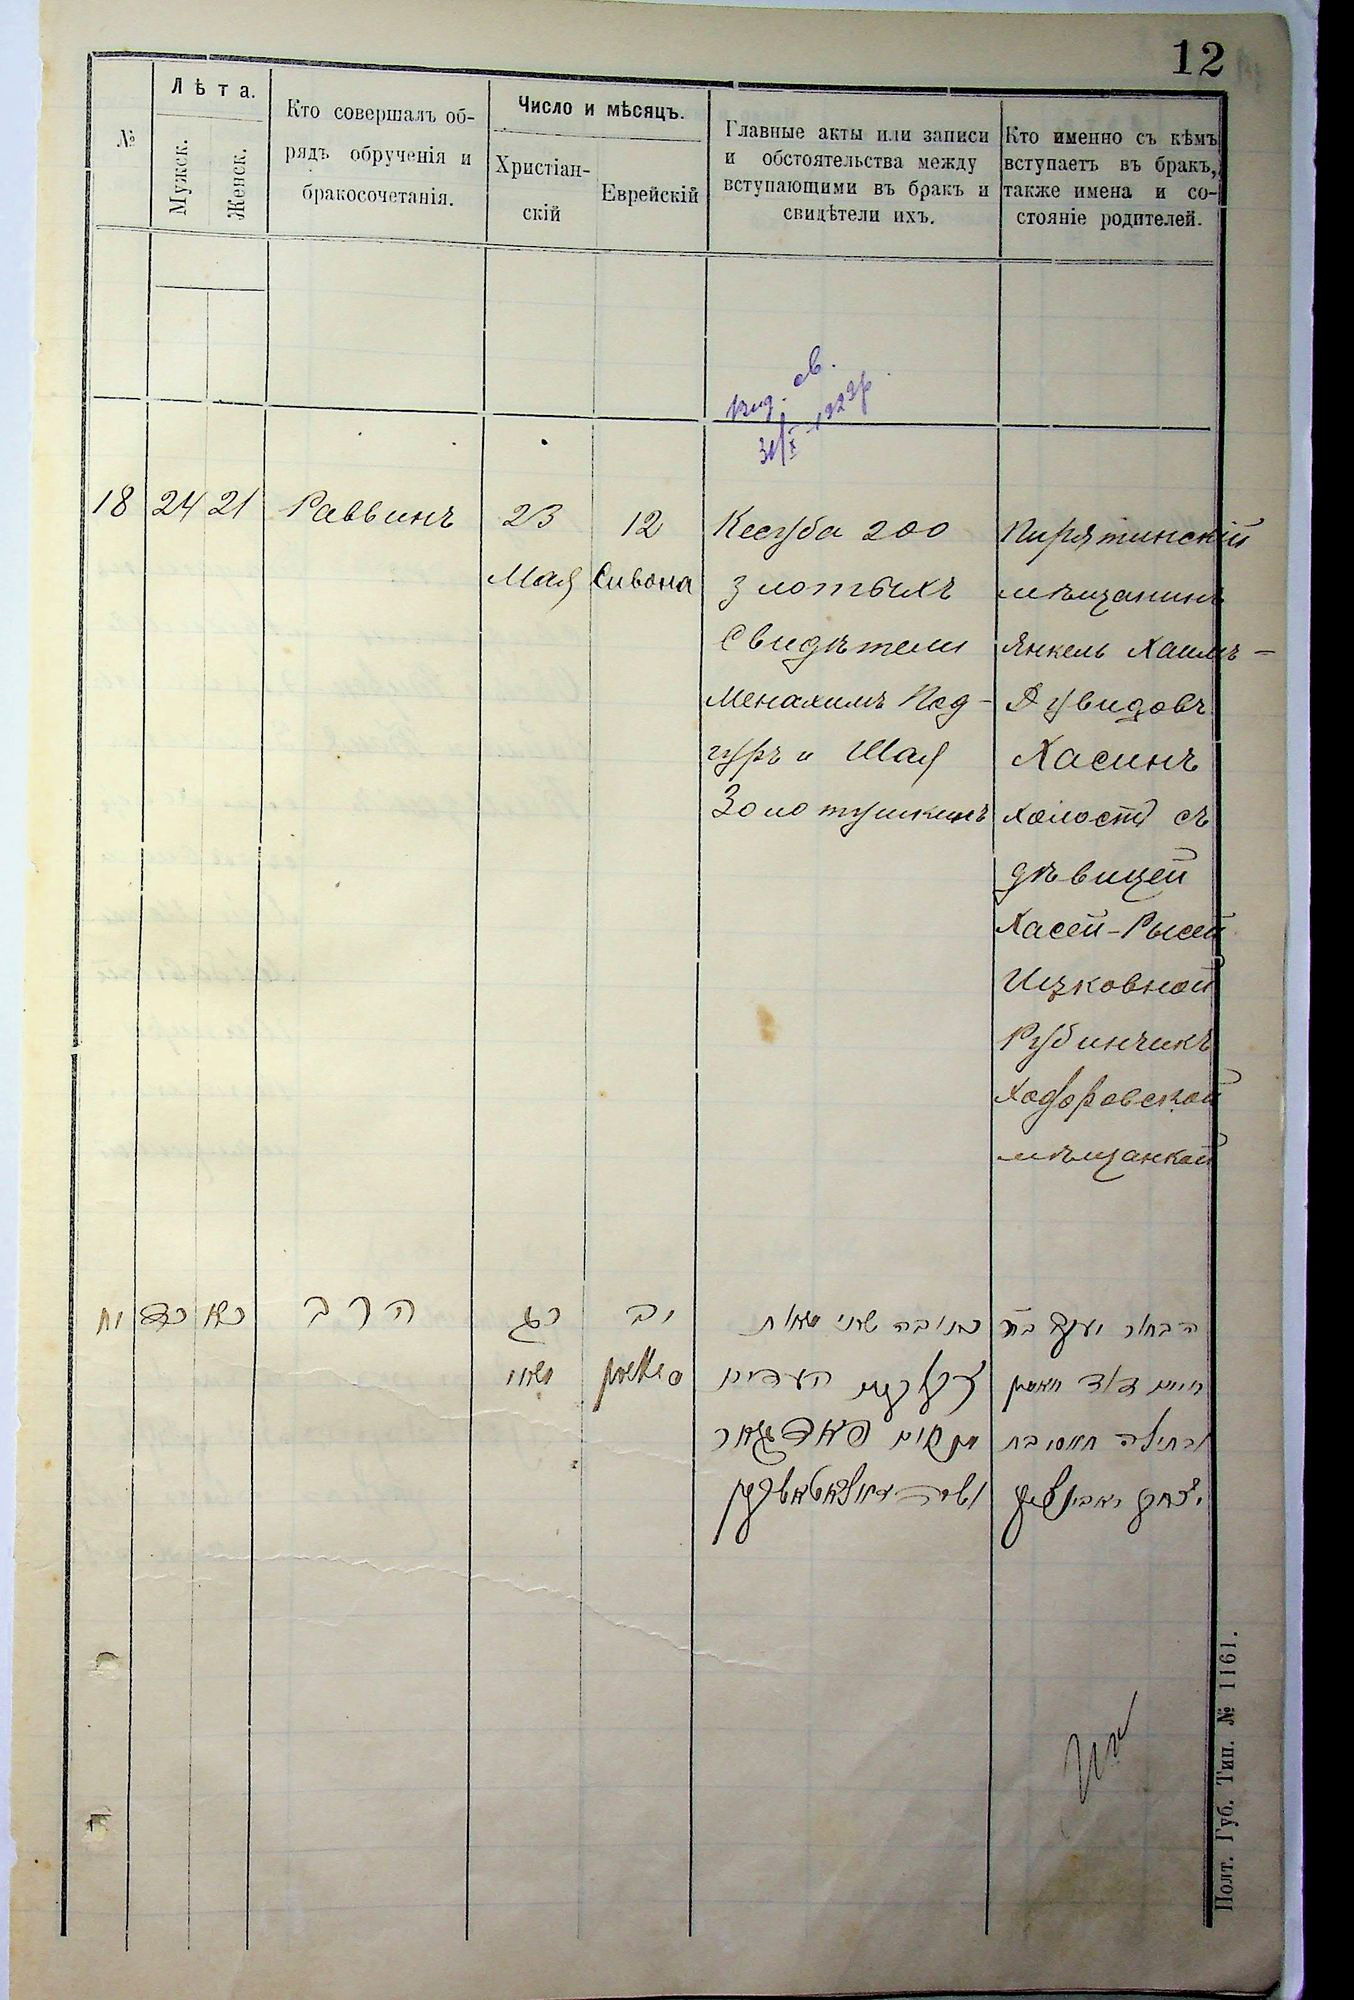 12
№
Лѣта.
Мужск.
Женск.
Кто совершалъ об-
рядъ обрученія и
бракосочетанія.
Число и мѣсяцъ.
Христіан-
скій
Еврейскій
Главные акты или записи
и обстоятельства между
вступающими въ бракъ и
свидѣтели ихъ.
Кто именно съ кѣмъ
вступаетъ въ бракъ,
также имена и со-
стояніе родителей.
выд. св.
31/X 1922 г.
18
24
21
Раввинъ
23
Мая
12
Сивона
Кесуба 200
злотыхъ
Свидѣтели
Менахимъ Под-
гуръ и Шая
Золотушкинъ
Пирятинскій
мѣщанинъ
Янкель Хаимъ-
Дувидовъ
Хасинъ
холостъ съ
дѣвицей
Хасей-Рысей
Ицковной
Рубинчикъ
Ходоровской
мѣщанкой
יח
כד
כא
הרב
כג
מאי
יב
סיון
כתובה שני מאות
העדים
הבחור יעקב בר
חיים דוד חאסין
יצחק ראבינציק
Полт. Губ. Тип. № 1161.